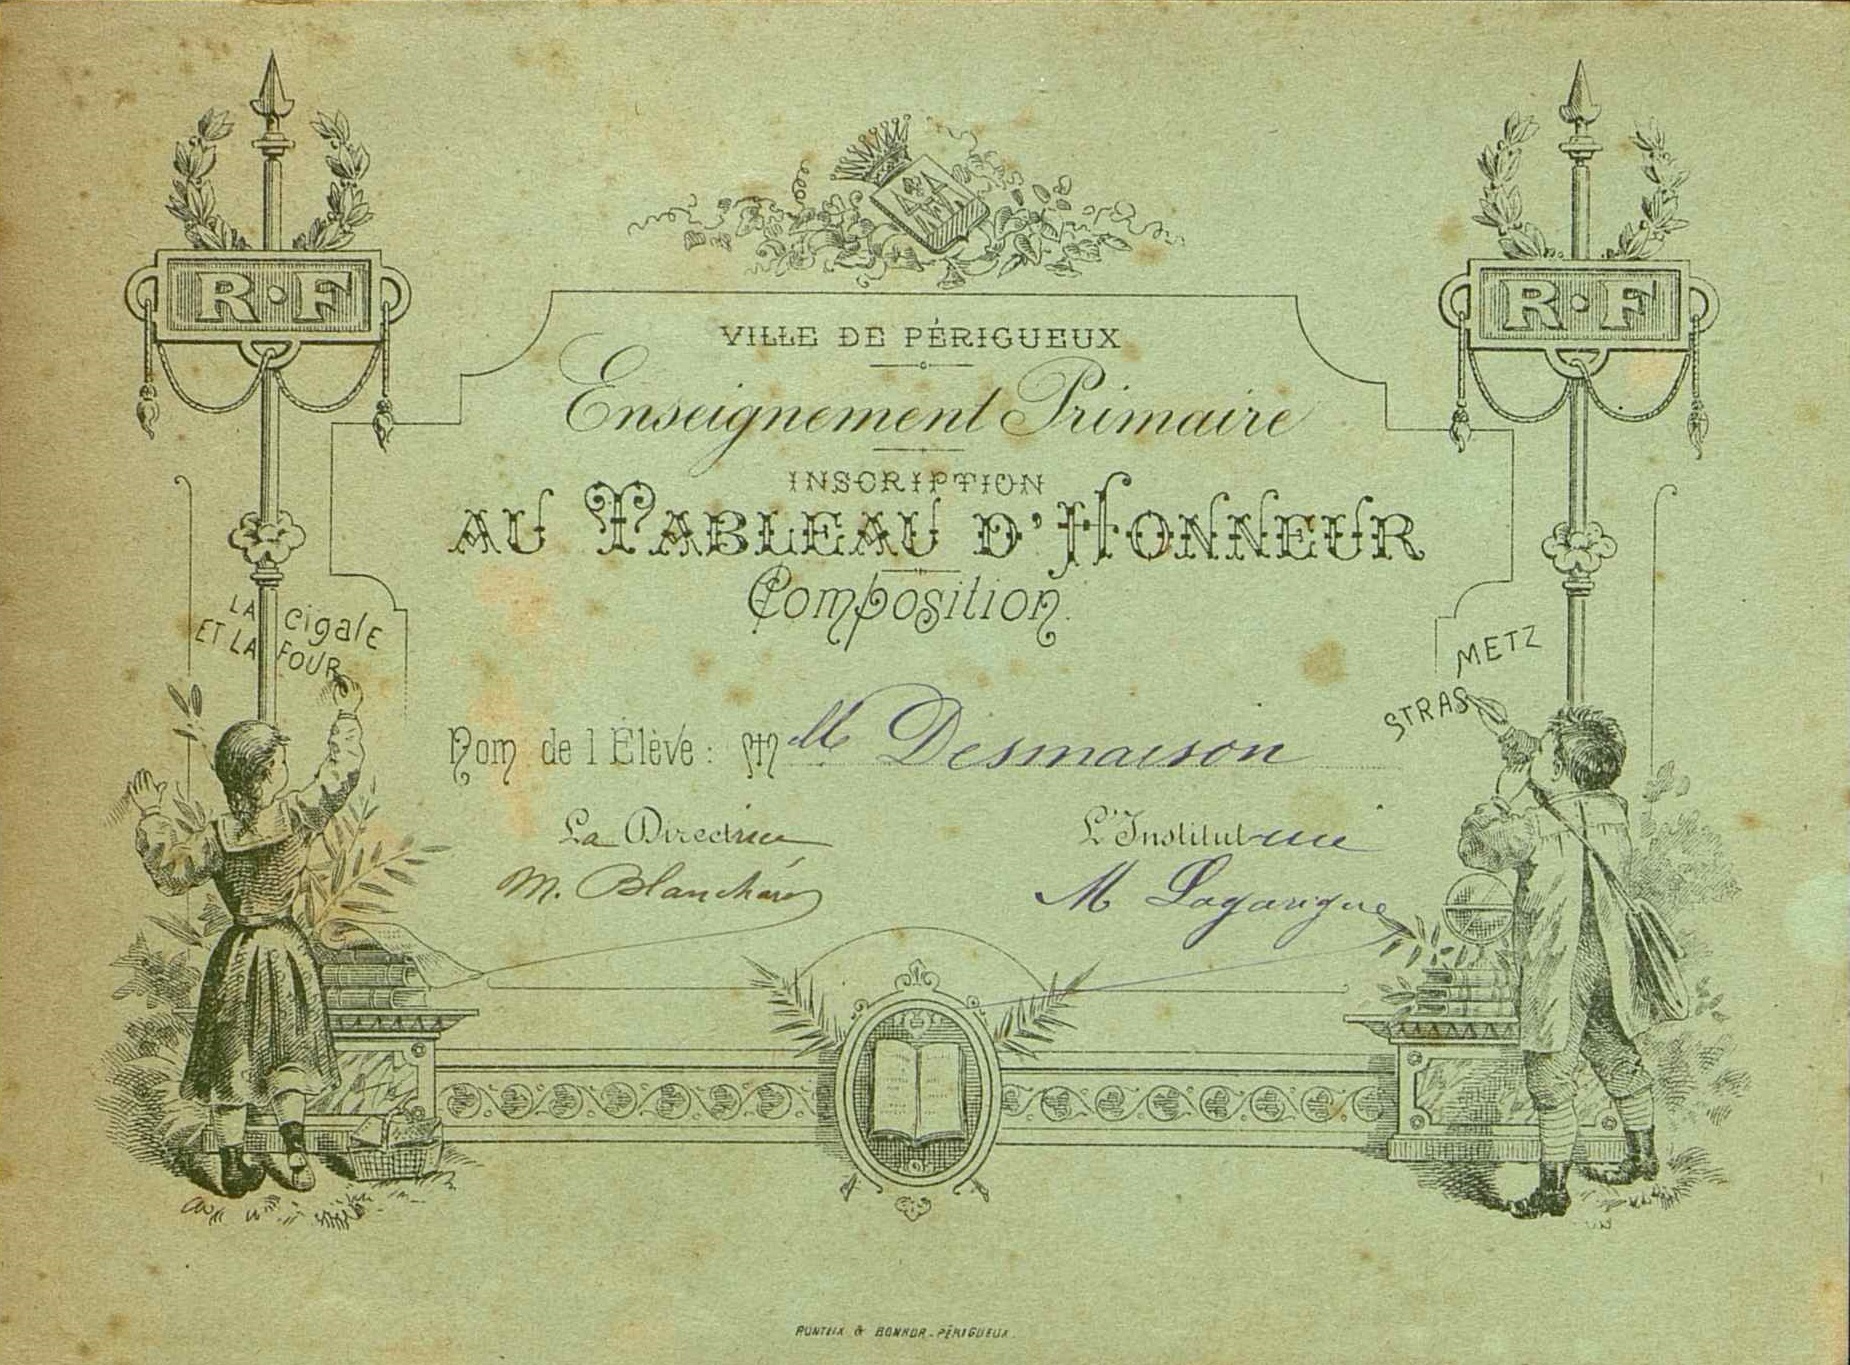 R·F
R·F
VILLE DE PÉRIGUEUX
Enseignement Primaire
INSCRIPTION
AU TABLEAU D'HONNEUR
Composition
LA cigale
ET LA FOUR
METZ
STRAS
Nom de l'Élève : Mlle Desmaison
La Directrice
L'Institutrice
M. Blanchard
M Lagarigue
RUNTEIX & BONNOR - PÉRIGUEUX